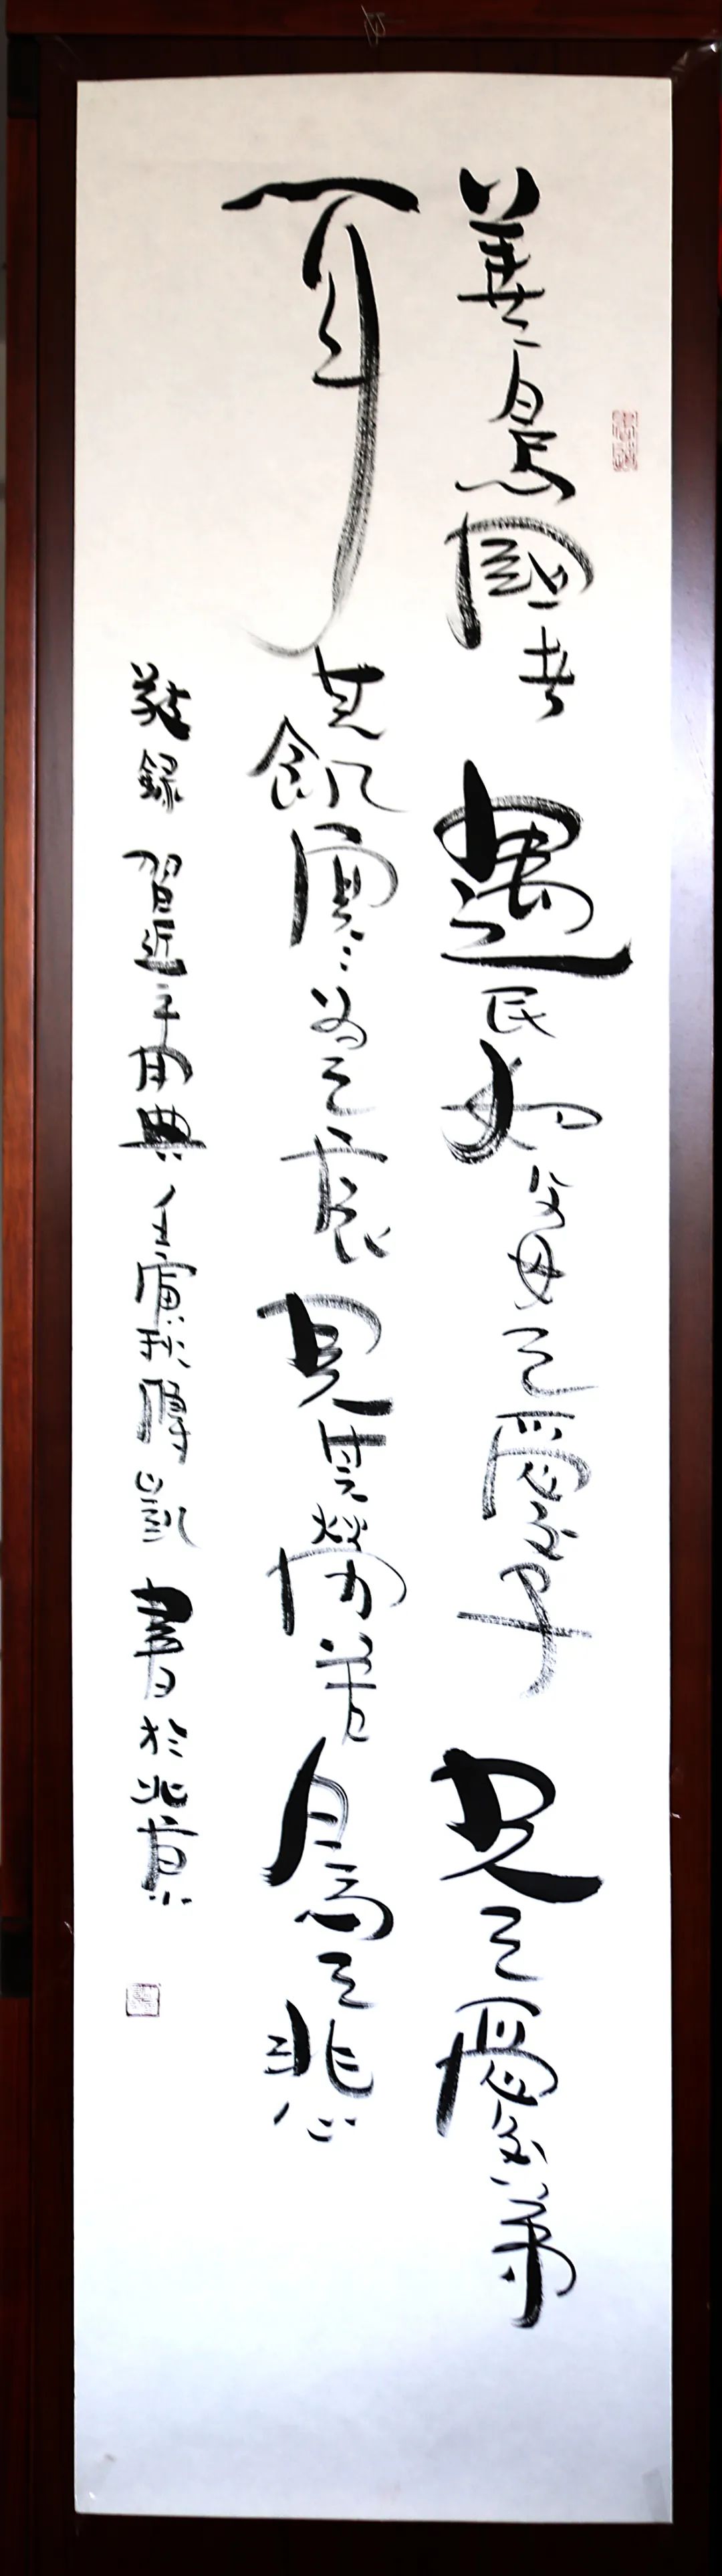 善爲國者遇民如父母之愛子兄之愛弟
聞其飢寒爲之哀見其勞苦爲之悲
敬録習近平用典壬寅秋凱書於北京